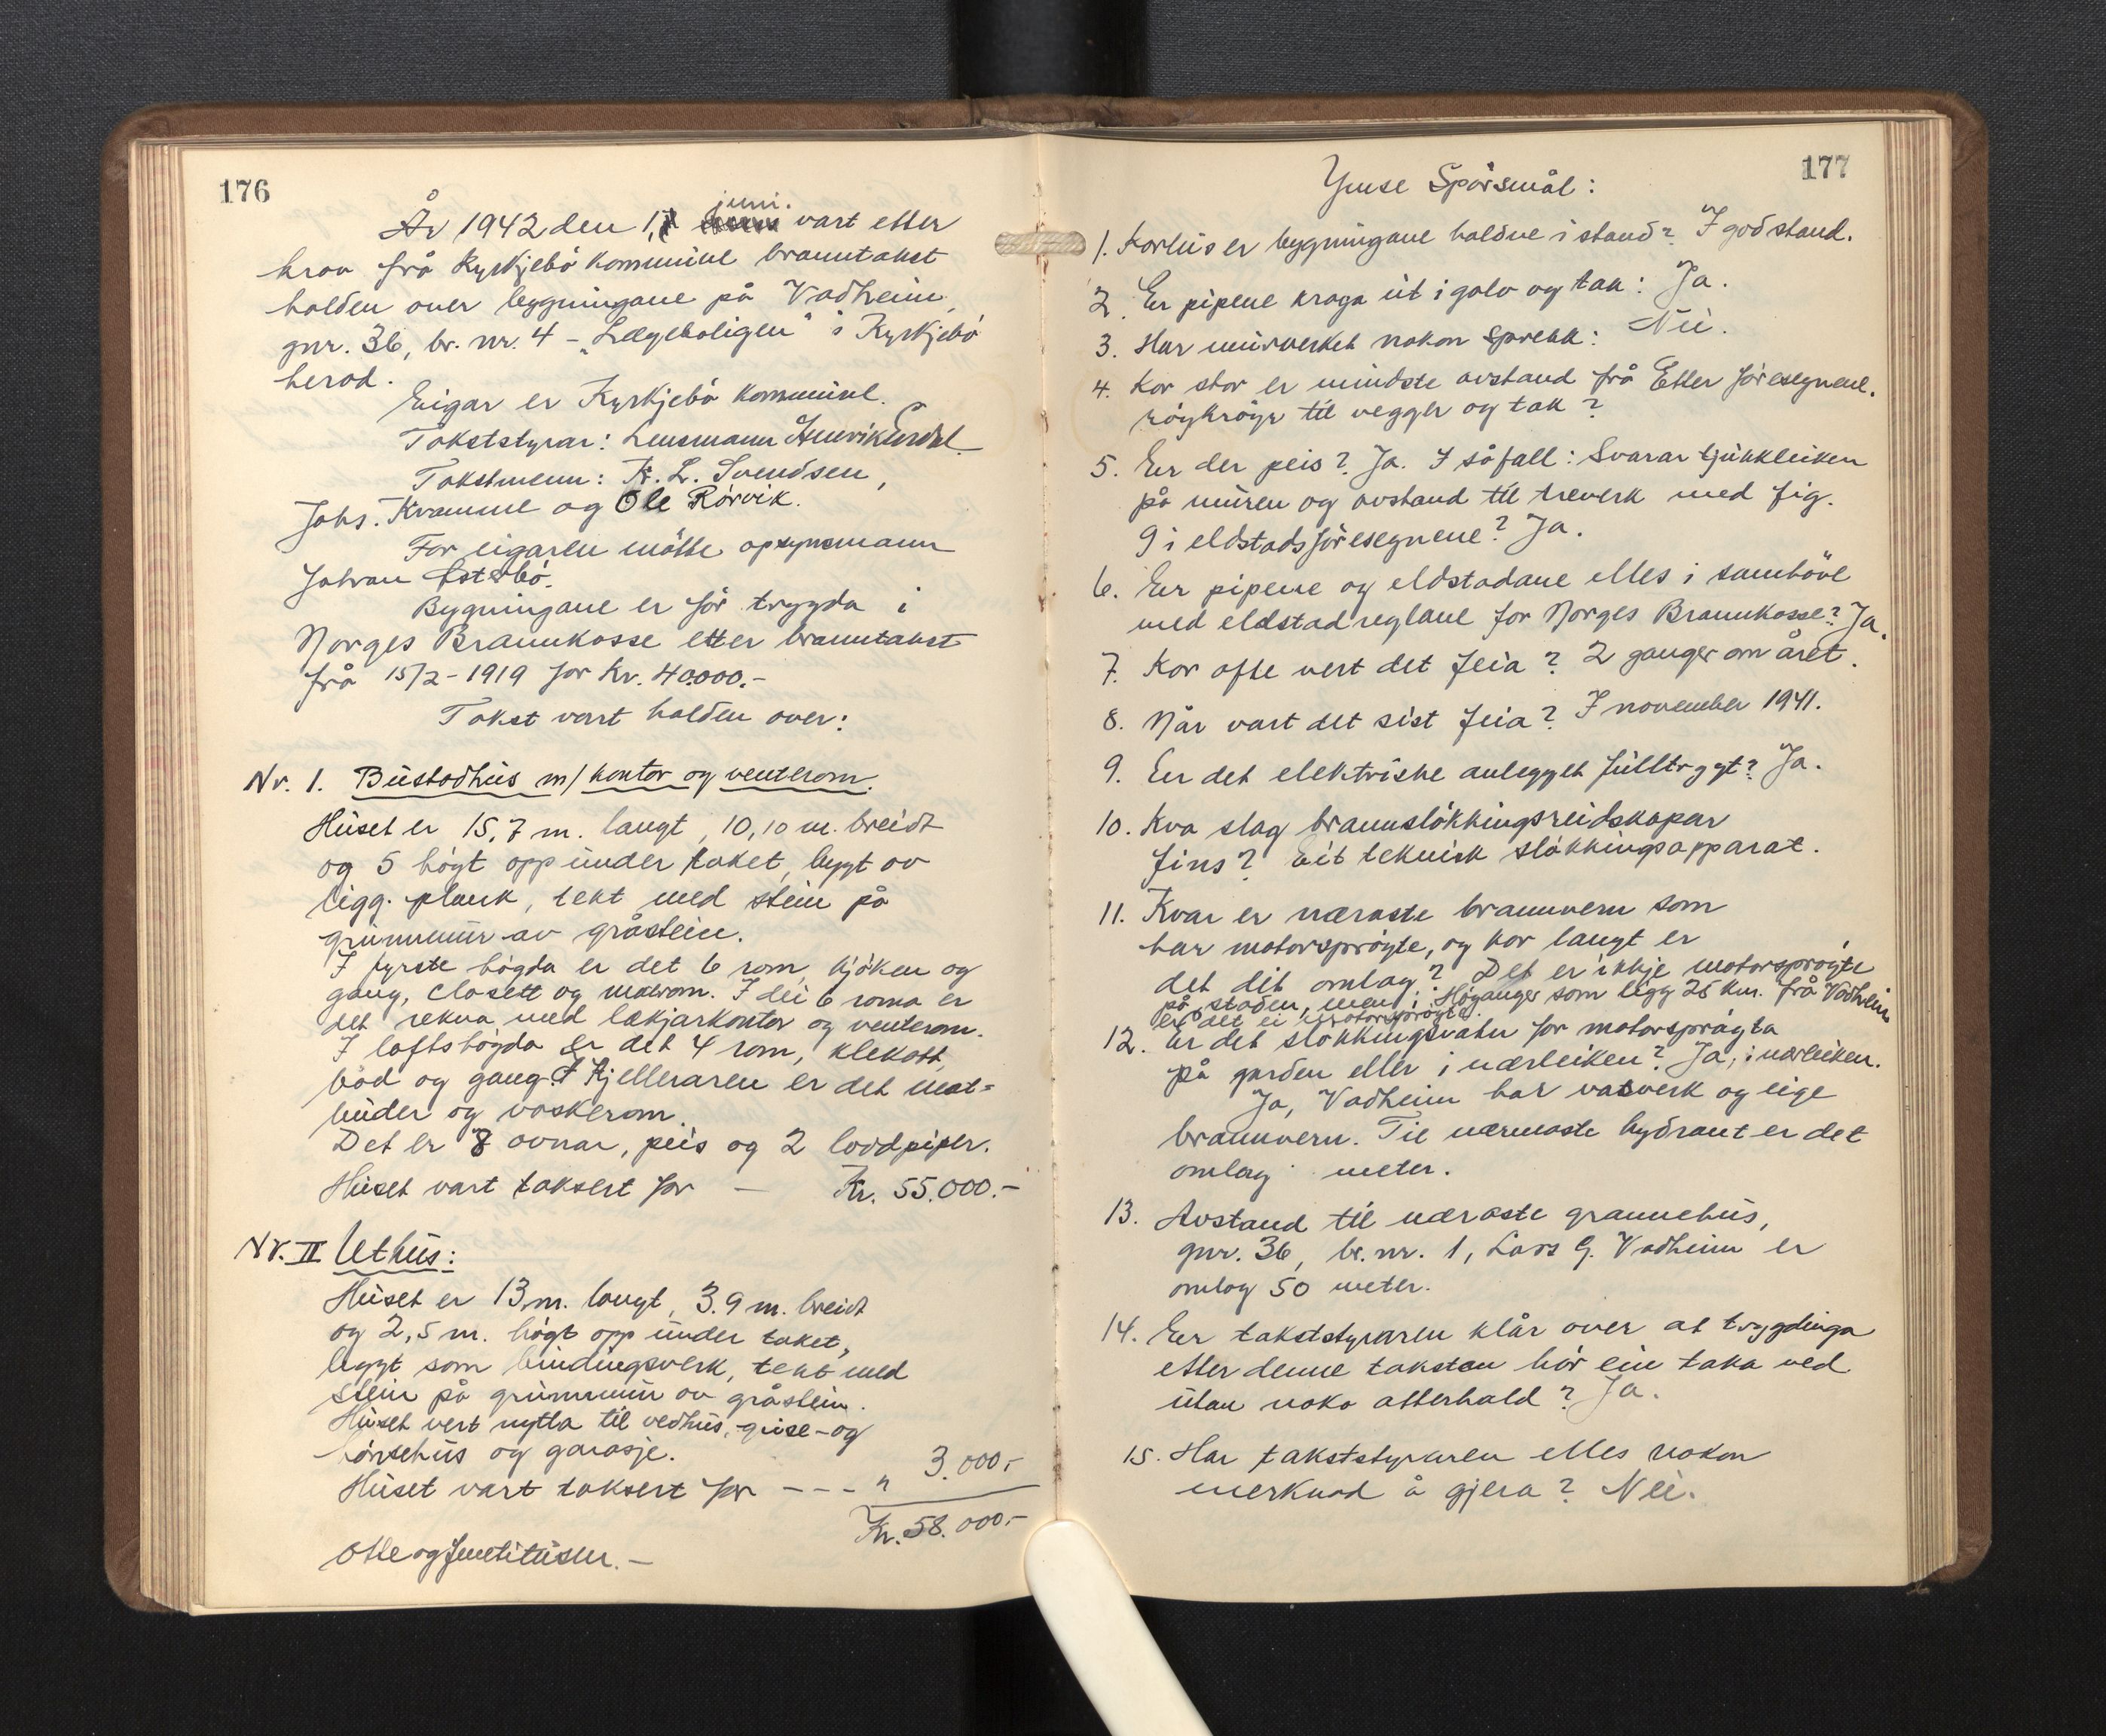 176
juni.
År 1942 den 1. vart etter
krav frå Kyrkjebö kommune branntakst
halden over bygningane på Vadheim,
gnr. 36, br. nr. 4 - „Lægeboligen" i Kyrkjebö
herad.
Eigar er Kyrkjebö kommune.
Takststyrar: Lensmann Henrik Erdal.
Takstmenn: K. L. Svendsen,
Johs. Kvamme og Ole Rörvik.
For eigaren mötte opsynsmann
Johan Österbö.
Bygningane er för trygda i
Norges Brannkasse etter branntakst
frå 15/2-1919 for kr. 40.000.-
Takst vart halden over:
Nr. 1. Bustadhus m/ kontor og venterom.
Huset er 15,7 m. langt, 10,10 m. breidt
og 5 högt opp under taket, bygt av
ligg. plank, tekt med stein på
grunnmur av gråstein.
I fyrste högda er det 6 rom, kjöken og
gang, closett og matrom. I dei 6 roma er
det rekna med lækjarkontor og venterom.
I loftshögda er det 4 rom, klekott,
bad og gang. I kjelleraren er det mat=
buder og vaskerom.
Det er 8 ovnar, peis og 2 loddpiper.
Huset vart taksert for — Kr. 55.000.-
Nr. II Uthus:
Huset er 13 m. langt, 3.9 m. breidt
og 2,5 m. högt opp under taket,
bygt som bindingsverk, tekt med
stein på grunnmur av gråstein.
Huset vert nytta til vedhus, grise- og
hönsehus og garasje.
Huset vart taksert for - - - " 3.000,-
Kr. 58.000.-
Otte og femtitusen. —
177
Ymse Spörsmål:
1. Korleis er bygningane haldne i stand? I god stand.
2. Er pipene kraga ut i golv og tak: Ja.
3. Har murverket nokon sprekk: Nei.
4. Kor stor er mindste avstand frå Etter föresegnene.
röykröyr til vegger og tak?
5. Er der peis? Ja. I såfall: Svarar tjukkleiken
på muren og avstand til treverk med fig.
9 i eldstadsföresegnene? Ja.
6. Er pipene og eldstadane elles i samhöve
med eldstadreglane for Norges Brannkasse? Ja.
7. Kor ofte vert det feia? 2 ganger om året.
8. Når vart det sist feia? I november 1941.
9. Er det elektriske anlegget fulltrygt? Ja.
10. Kva slag brannslökkingsreidskapar
fins? Eit teknisk slökkingsapparat.
11. Kvar er næraste brannvern som
har motorspröyte, og kor langt er
det dit omlag? Det er ikkje motorspröyte
på staden, men i Höyanger som ligg 25 km. frå Vadheim
er det ei motorspröyte.
12. Er det slökkingsvatn for motorspröyta
på garden eller i nærleiken? Ja, i nærleiken.
Ja, Vadheim har vasverk og eige
brannvern. Til nærmaste hydrant er det
omlag meter.
13. Avstand til næraste grannehus,
gnr. 36, br. nr. 1, Lars G. Vadheim er
omlag 50 meter.
14. Er takststyraren klår over at trygdinga
etter denne taksten bör ein taka ved
utan noko atterhald? Ja.
15. Har takststyraren elles nokon
merknad å gjera? Nei.